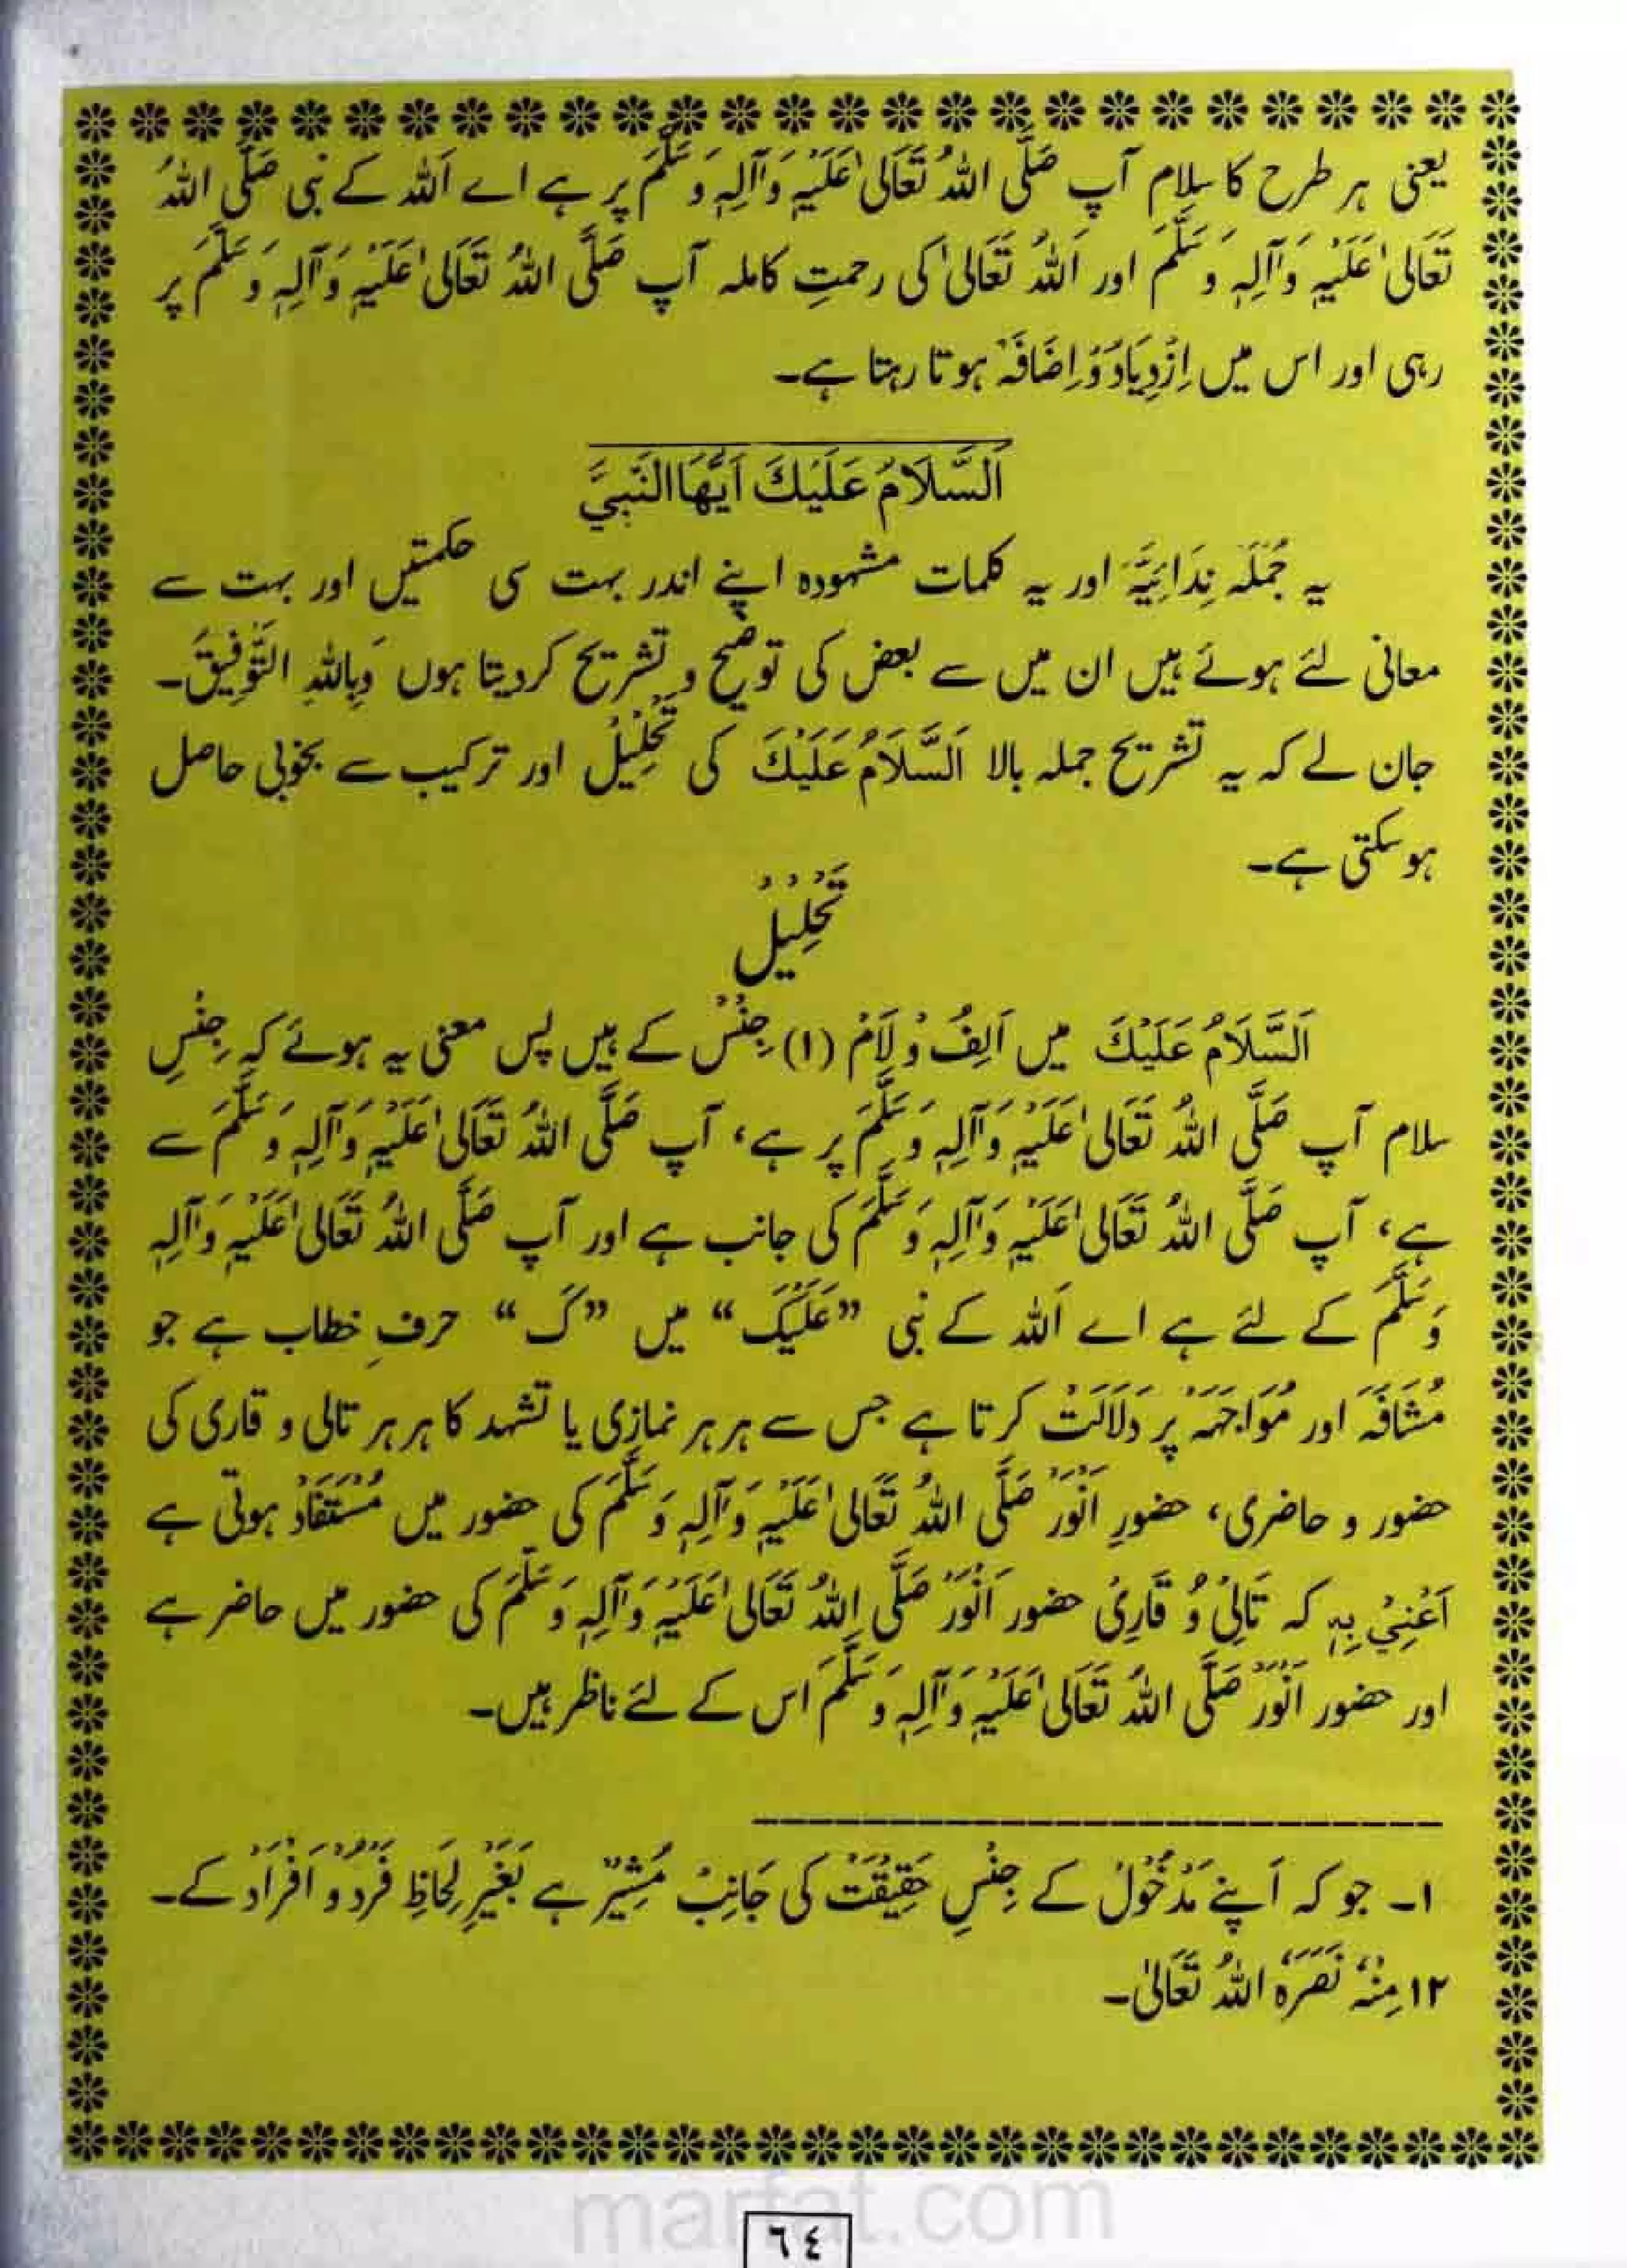 یعنی ہر طرح کا سلام آپ صَلَّی اللہُ تَعَالیٰ عَلَیْہِ وَآلِہٖ وَسَلَّمَ پر ہے اے اَللہ کے نبی صَلَّی اللہُ
تَعَالیٰ عَلَیْہِ وَآلِہٖ وَسَلَّمَ اور اَللہُ تَعَالیٰ کی رحمتِ کاملہ آپ صَلَّی اللہُ تَعَالیٰ عَلَیْہِ وَآلِہٖ وَسَلَّمَ پر
رہی اور اس میں اِزْدِیَادْ وَ اِضَافَہْ ہوتا رہتا ہے۔
اَلسَّلَامُ عَلَيْكَ اَيُّهَا النَّبِيَّ
یہ جُمْلَہ نِدَائِیَّہْ اور یہ کلمات مشہودہ اپنے اندر بہت سی حکمتیں اور بہت سے
معانی لئے ہوئے ہیں ان میں سے بعض کی توضیح و تشریح کردیتا ہوں وَبِاللہِ التَّوْفِیْقْ۔
جان لے کہ یہ تشریح جملہ بالا اَلسَّلَامُ عَلَيْكَ کی تَحْلِیْلْ اور ترکیب سے بخوبی حاصل
ہوسکتی ہے۔
تَحْلِیْلْ
اَلسَّلَامُ عَلَيْكَ میں اَلِفْ وْ لَامْ (۱) جِنْسْ کے ہیں پس معنی یہ ہوئے کہ جِنْسِ
سلام آپ صَلَّی اللہُ تَعَالیٰ عَلَیْہِ وَآلِہٖ وَسَلَّمَ پر ہے، آپ صَلَّی اللہُ تَعَالیٰ عَلَیْہِ وَآلِہٖ وَسَلَّمَ سے
ہے، آپ صَلَّی اللہُ تَعَالیٰ عَلَیْہِ وَآلِہٖ وَسَلَّمَ کی جانب ہے اور آپ صَلَّی اللہُ تَعَالیٰ عَلَیْہِ وَآلِہٖ
وَسَلَّمَ کے لئے ہے اے اَللہ کے نبی ”عَلَیْکَ“ میں ”کَ“ حرفِ خطاب ہے جو
مُشَافَہَہ اور مُوَاجَہَہْ پر دَلَالَتْ کرتا ہے جس سے ہر ہر نمازی یا تشہد کا ہر ہر تالی و قاری کی
حضور و حاضری، حضورِ اَنْوَرْ صَلَّی اللہُ تَعَالیٰ عَلَیْہِ وَآلِہٖ وَسَلَّمَ کی حضور میں مُسْتَفَادْ ہوتی ہے
اَعْنِیْ بِہٖ کہ تَالِیْ وْ قَارِیْ حضور اَنْوَرْ صَلَّی اللہُ تَعَالیٰ عَلَیْہِ وَآلِہٖ وَسَلَّمَ کی حضور میں حاضر ہے
اور حضور اَنْوَرْ صَلَّی اللہُ تَعَالیٰ عَلَیْہِ وَآلِہٖ وَسَلَّمَ اس کے لئے ناظر ہیں۔
۱۔ جو کہ اَپنے مَدْخُوْلْ کے جِنْسِ حَقِیْقَتْ کی جَانِبْ مُشِیْرْ ہے بَغَیْرِ لِحَاظِ فَرْدْ وْ اَفْرَادْ کے۔
۱۲ مِنْہُ نَصَرَہُ اللہُ تَعَالیٰ۔
marfat.com
٦٤